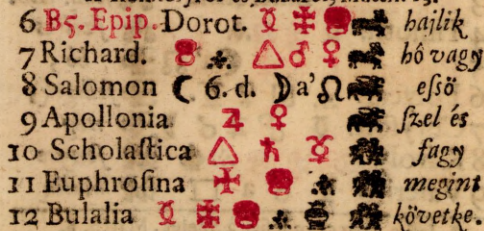 6 B5. Epip. Dorot. hajlik
7 Richard. △ ♂ ♀ hô vagy
8 Salomon ☾ 6. d. ☽ a' ☊ eſsö
9 Apollonia ♃ ♀ ſzel és
10 Scholaſtica △ ♄ ♉ fagy
11 Euphroſina megint
12 Bulalia követke.